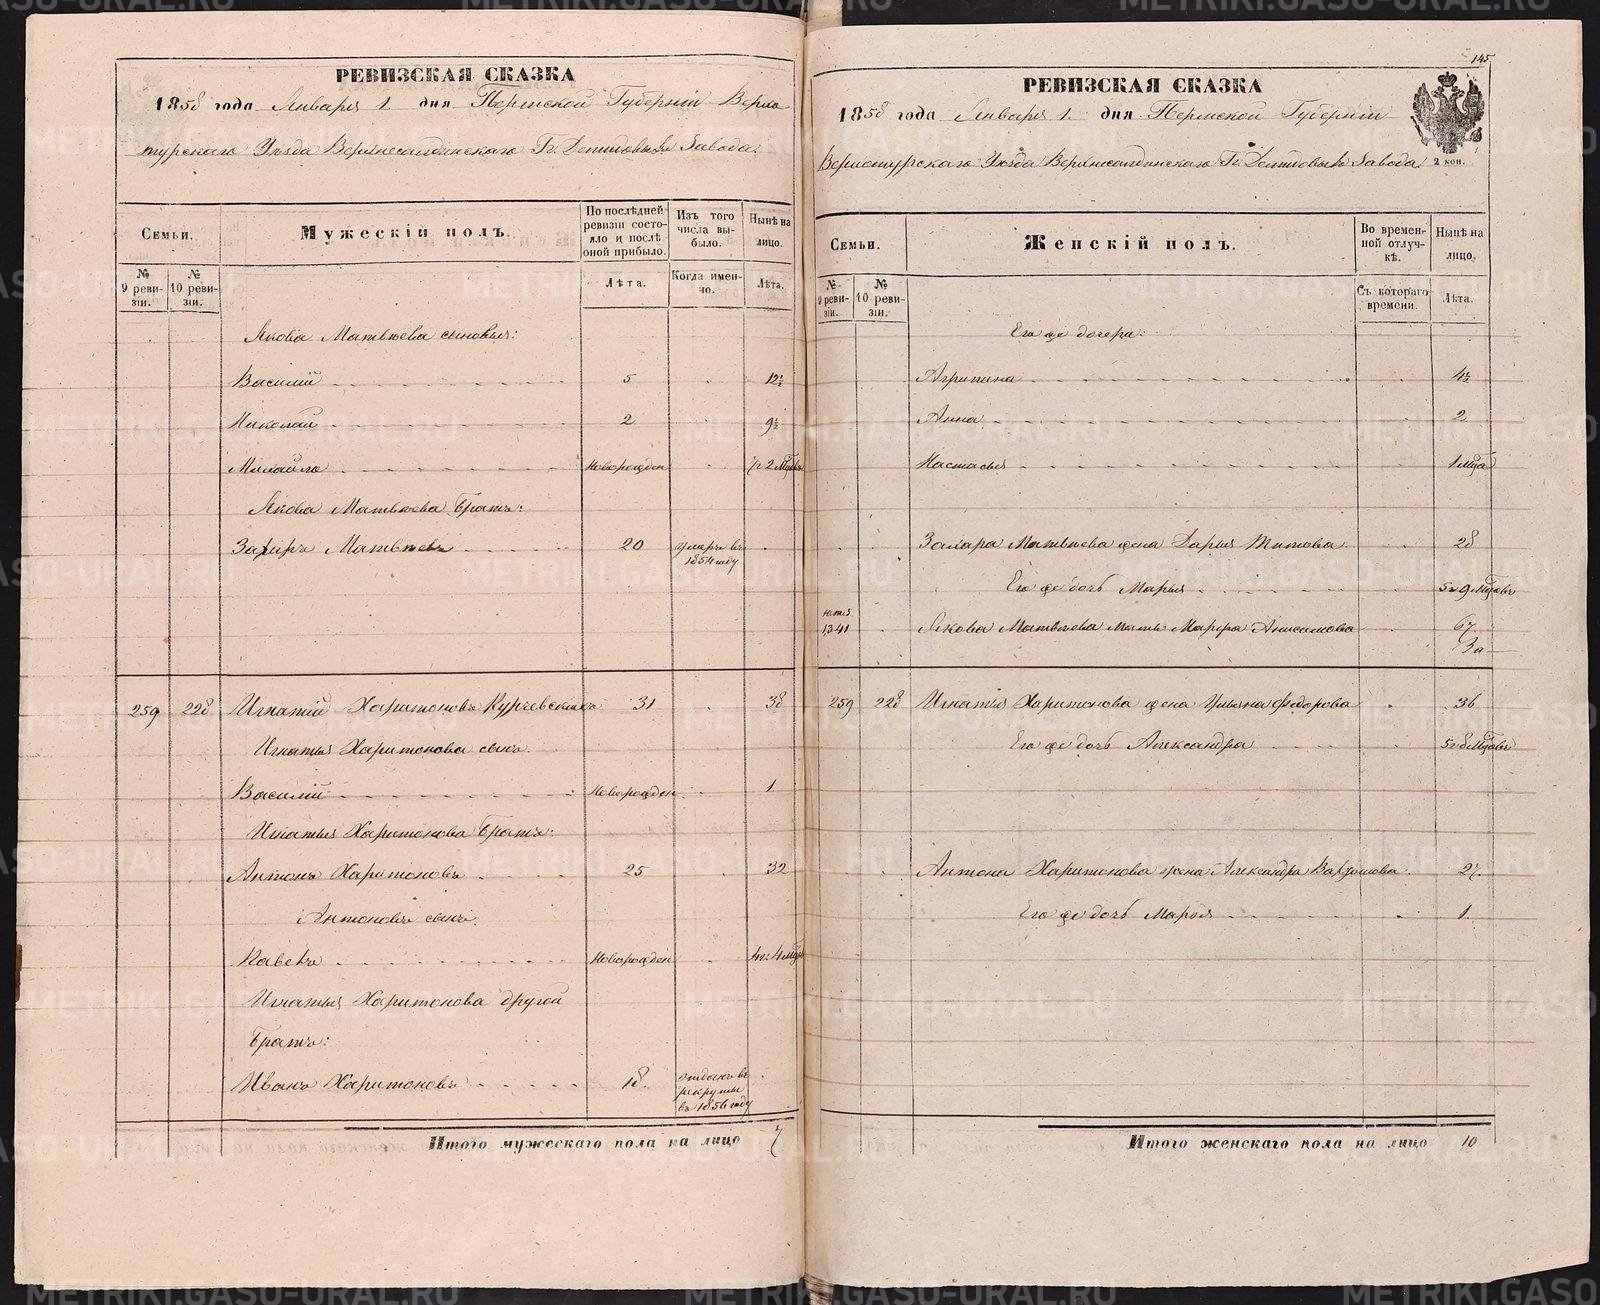 РЕВИЗСКАЯ СКАЗКА
1858 года Января 1. дня Пермской Губерніи Верхо
турскаго Уѣзда Верхнесалдинскаго Гг. Демидовыхъ Завода.
Семьи.
Мужескій полъ.
По послѣдней ревизіи состояло и послѣ оной прибыло.
Изъ того числа выбыло.
Нынѣ на лицо.
№ 9 ревизіи.
№ 10 ревизіи.
Лѣта.
Когда именно.
Лѣта.
Якова Матвѣева сыновья:
Василій 5 12½
Николай 2 9½
Михайло Новорожден 7 г. 2 мѣся
Якова Матвѣева братъ:
Захаръ Матвѣевъ 20 умеръ въ 1854 году
259 228 Игнатій Харитоновъ 31 38
Игнатья Харитонова сынъ
Василій Новорожден 1
Игнатья Харитонова братъ:
Антонъ Харитоновъ 25 32
Антоновъ сынъ
Павелъ Новорожден 4 г. 4 мѣся
Игнатья Харитонова другой
братъ:
Иванъ Харитоновъ 18 отданъ въ рекруты въ 1856 году
Итого мужескаго пола на лицо 7
145
РЕВИЗСКАЯ СКАЗКА
1858 года Января 1. дня Пермской Губерніи
Верхотурскаго Уѣзда Верхнесалдинскаго Гг. Демидовыхъ Завода
2 коп.
Семьи.
Женскій полъ.
Во временной отлучкѣ.
Нынѣ на лицо.
№ 9 ревизіи.
№ 10 ревизіи.
Съ котораго времени.
Лѣта.
Его же дочери:
Агрипина 4½
Анна 2
Настасья 1 мѣся
Захара Матвѣева жена Дарья Титова 28
Его же дочь Марья 5 г. 9 мѣсяцовъ
1341 Якова Матвѣева мать Марфа Анисимова 67
259 228 Игнатья Харитонова жена Ульяна Федорова 36
Его же дочь Александра 5 г. 8 мѣсяцовъ
Антона Харитонова жена Александра 27
Его же дочь Марья 1.
Итого женскаго пола на лицо 10
METRIKI.GASO-URAL.RU